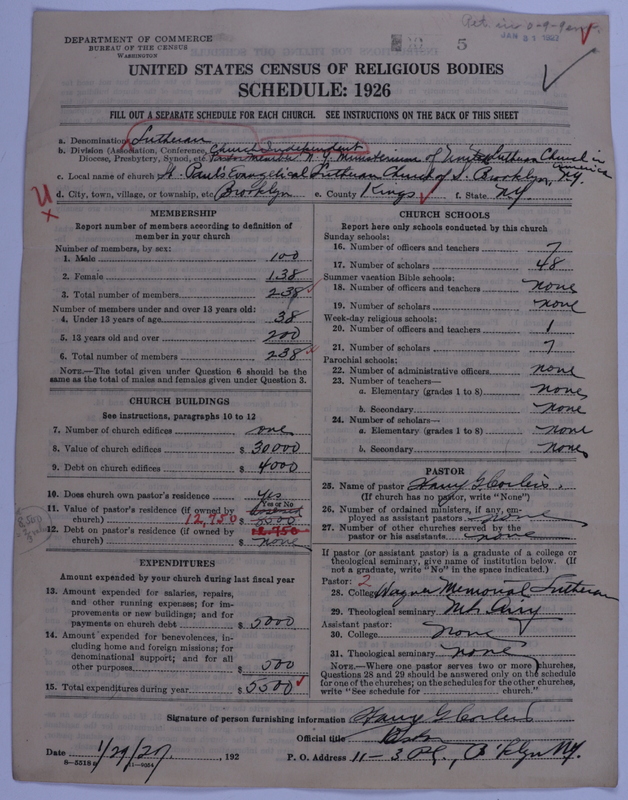 DEPARTMENT OF COMMERCE
BUREAU OF THE CENSUS
WASHINGTON
5
JAN 31 1927
UNITED STATES CENSUS OF RELIGIOUS BODIES
SCHEDULE: 1926
FILL OUT A SEPARATE SCHEDULE FOR EACH CHURCH. SEE INSTRUCTIONS ON THE BACK OF THIS SHEET
a. Denomination Lutheran
b. Division (Association, Conference, Church Independent
Diocese, Presbytery, Synod, etc. N. Y. Ministerium of United Lutheran Church in America
c. Local name of church St. Pauls Evangelical Lutheran Church of S. Brooklyn, N.Y.
d. City, town, village, or township, etc. Brooklyn e. County Kings f. State N.Y.
MEMBERSHIP
Report number of members according to definition of
member in your church
Number of members, by sex:
1. Male 100
2. Female 138
3. Total number of members 238
Number of members under and over 13 years old:
4. Under 13 years of age 38
5. 13 years old and over 200
6. Total number of members 238
NOTE.—The total given under Question 6 should be the
same as the total of males and females given under Question 3.
CHURCH BUILDINGS
See instructions, paragraphs 10 to 12
7. Number of church edifices one
8. Value of church edifices $ 30000
9. Debt on church edifices $ 4000
10. Does church own pastor's residence Yes
Yes or No
11. Value of pastor's residence (if owned by
church) 12,750 $
12. Debt on pastor's residence (if owned by 12,750
church) $ none
EXPENDITURES
Amount expended by your church during last fiscal year
13. Amount expended for salaries, repairs,
and other running expenses; for im-
provements or new buildings; and for
payments on church debt $ 5000
14. Amount expended for benevolences, in-
cluding home and foreign missions; for
denominational support; and for all
other purposes $ 500
15. Total expenditures during year $ 5500
CHURCH SCHOOLS
Report here only schools conducted by this church
Sunday schools:
16. Number of officers and teachers 7
17. Number of scholars 48
Summer vacation Bible schools:
18. Number of officers and teachers none
19. Number of scholars none
Week-day religious schools:
20. Number of officers and teachers 1
21. Number of scholars 7
Parochial schools:
22. Number of administrative officers none
23. Number of teachers—
a. Elementary (grades 1 to 8) none
b. Secondary none
24. Number of scholars—
a. Elementary (grades 1 to 8) none
b. Secondary none
PASTOR
25. Name of pastor Harry G
(If church has no pastor, write "None")
26. Number of ordained ministers, if any, em-
ployed as assistant pastors none
27. Number of other churches served by the
pastor or his assistants none
If pastor (or assistant pastor) is a graduate of a college or
theological seminary, give name of institution below. (If
not a graduate, write "No" in the space indicated.)
Pastor: 2
28. College Wagner Memorial Lutheran
29. Theological seminary Mt. Airy
Assistant pastor:
30. College none
31. Theological seminary none
NOTE.—Where one pastor serves two or more churches,
Questions 28 and 29 should be answered only on the schedule
for one of the churches; on the schedules for the other churches,
write "See schedule for ............ church."
Signature of person furnishing information Harry G
Official title Pastor
Date 1/29/27, 192 P. O. Address 11 - 3 Pl., B'klyn N.Y.
8—5518a 11—9054